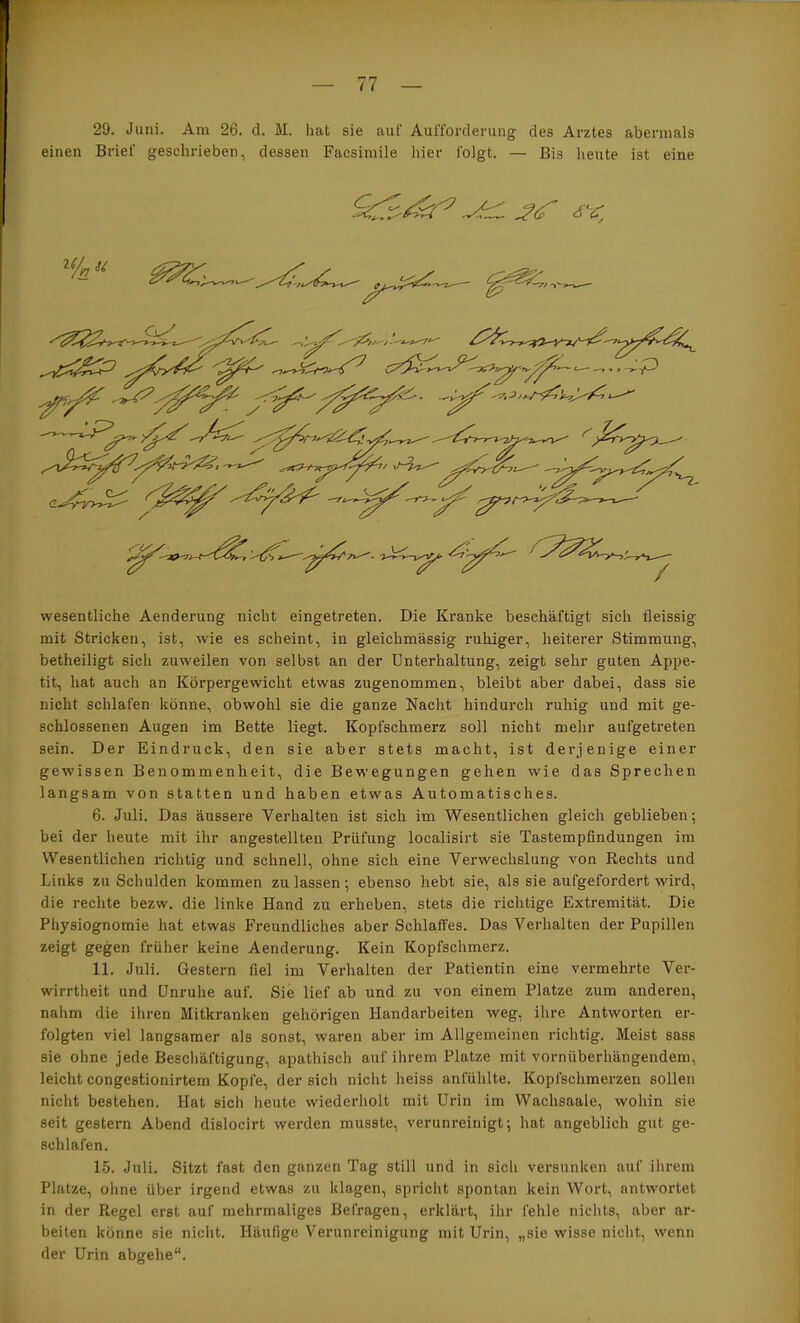 — 77 —
29. Juni. Am 26. d. M. hat sie auf Aufforderung des Arztes abermals
einen Brief geschrieben, dessen Facsimile hier folgt. — Bis heute ist eine
wesentliche Aenderung nicht eingetreten. Die Kranke beschäftigt sich fleissig
mit Stricken, ist, wie es scheint, in gleichmässig ruhiger, heiterer Stimmung,
betheiligt sich zuweilen von selbst an der Unterhaltung, zeigt sehr guten Appe-
tit, hat auch an Körpergewicht etwas zugenommen, bleibt aber dabei, dass sie
nicht schlafen könne, obwohl sie die ganze Nacht hindurch ruhig und mit ge-
schlossenen Augen im Bette liegt. Kopfschmerz soll nicht mehr aufgetreten
sein. Der Eindruck, den sie aber stets macht, ist derjenige einer
gewissen Benommenheit, die Bewegungen gehen wie das Sprechen
langsam von statten und haben etwas Automatisches.
6. Juli. Das äussere Verhalten ist sich im Wesentlichen gleich geblieben;
bei der heute mit ihr angestellten Prüfung localisirt sie Tastempfindungen im
Wesentlichen richtig und schnell, ohne sich eine Verwechslung von Rechts und
Links zu Schulden kommen zu lassen; ebenso hebt sie, als sie aufgefordert wird,
die rechte bezw. die linke Hand zu erheben, stets die richtige Extremität. Die
Physiognomie hat etwas Freundliches aber Schlaffes. Das Verhalten der Pupillen
zeigt gegen früher keine Aenderung. Kein Kopfschmerz.
11. Juli. Gestern fiel im Verhalten der Patientin eine vermehrte Ver-
wirrtheit und Unruhe auf. Sie lief ab und zu von einem Platze zum anderen,
nahm die ihren Mitkranken gehörigen Handarbeiten weg, ihre Antworten er-
folgten viel langsamer als sonst, waren aber im Allgemeinen richtig. Meist sass
sie ohne jede Beschäftigung, apathisch auf ihrem Platze mit vornüberhängendem,
leicht congestionirtem Kopfe, der sich nicht heiss anfühlte. Kopfschmerzen sollen
nicht bestehen. Hat sich heute wiederholt mit Urin im Wachsaale, wohin sie
seit gestern Abend dislocirt werden musste, verunreinigt; hat angeblich gut ge-
schlafen.
15. Juli. Sitzt fast den ganzen Tag still und in sich versunken auf ihrem
Platze, ohne über irgend etwas zu klagen, spricht spontan kein Wort, antwortet
in der Regel erst auf mehrmaliges Befragen, erklärt, ihr fehle nichts, aber ar-
beiten könne sie nicht. Häufige Verunreinigung mit Urin, „sie wisse nicht, wenn
der Urin abgehe“.